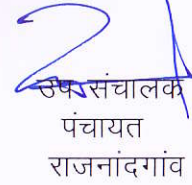 उप संचालक
पंचायत
राजनांदगांव